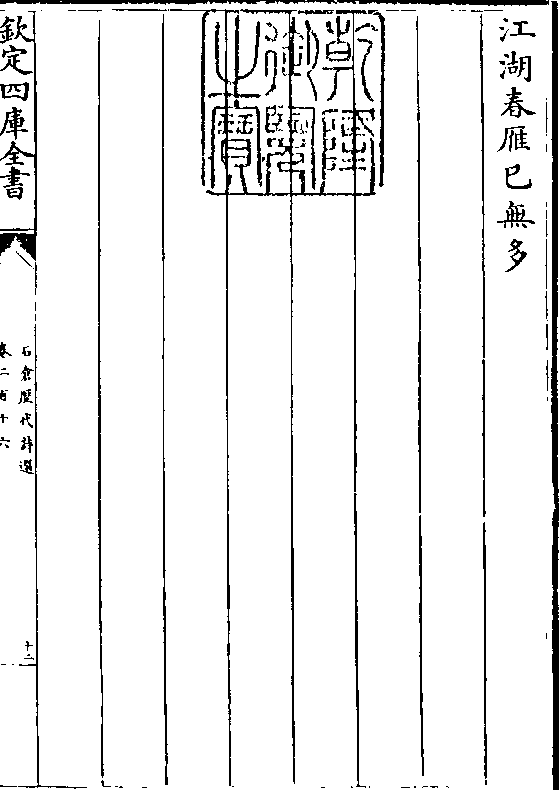 江湖春雁已無多
乾隆御覽之寶
欽定四庫全書
石倉歷代詩選
卷二百十六
十二